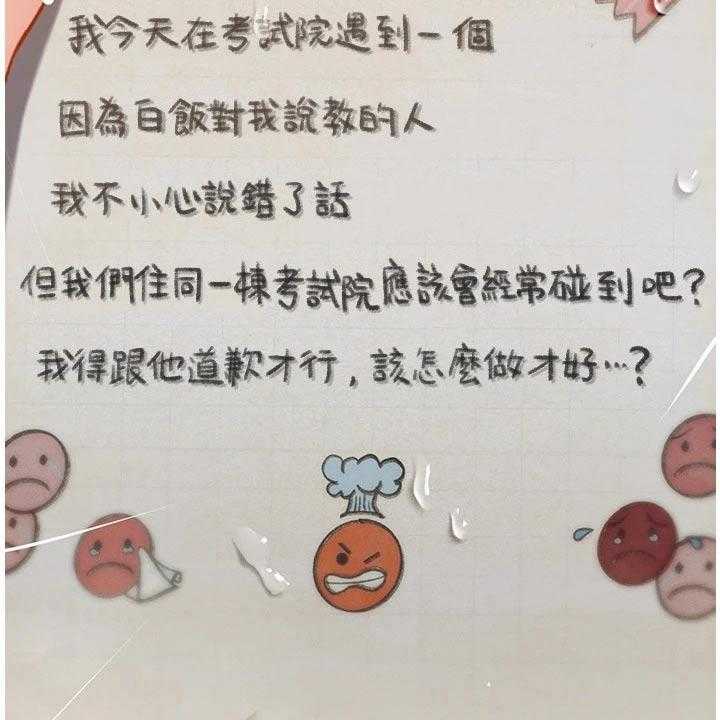 我今天在考試院遇到一個
因為白飯對我說教的人
我不小心說錯了話
但我們住同一棟考試院應該會經常碰到吧?
我得跟他道歉才行,該怎麼做才好…?